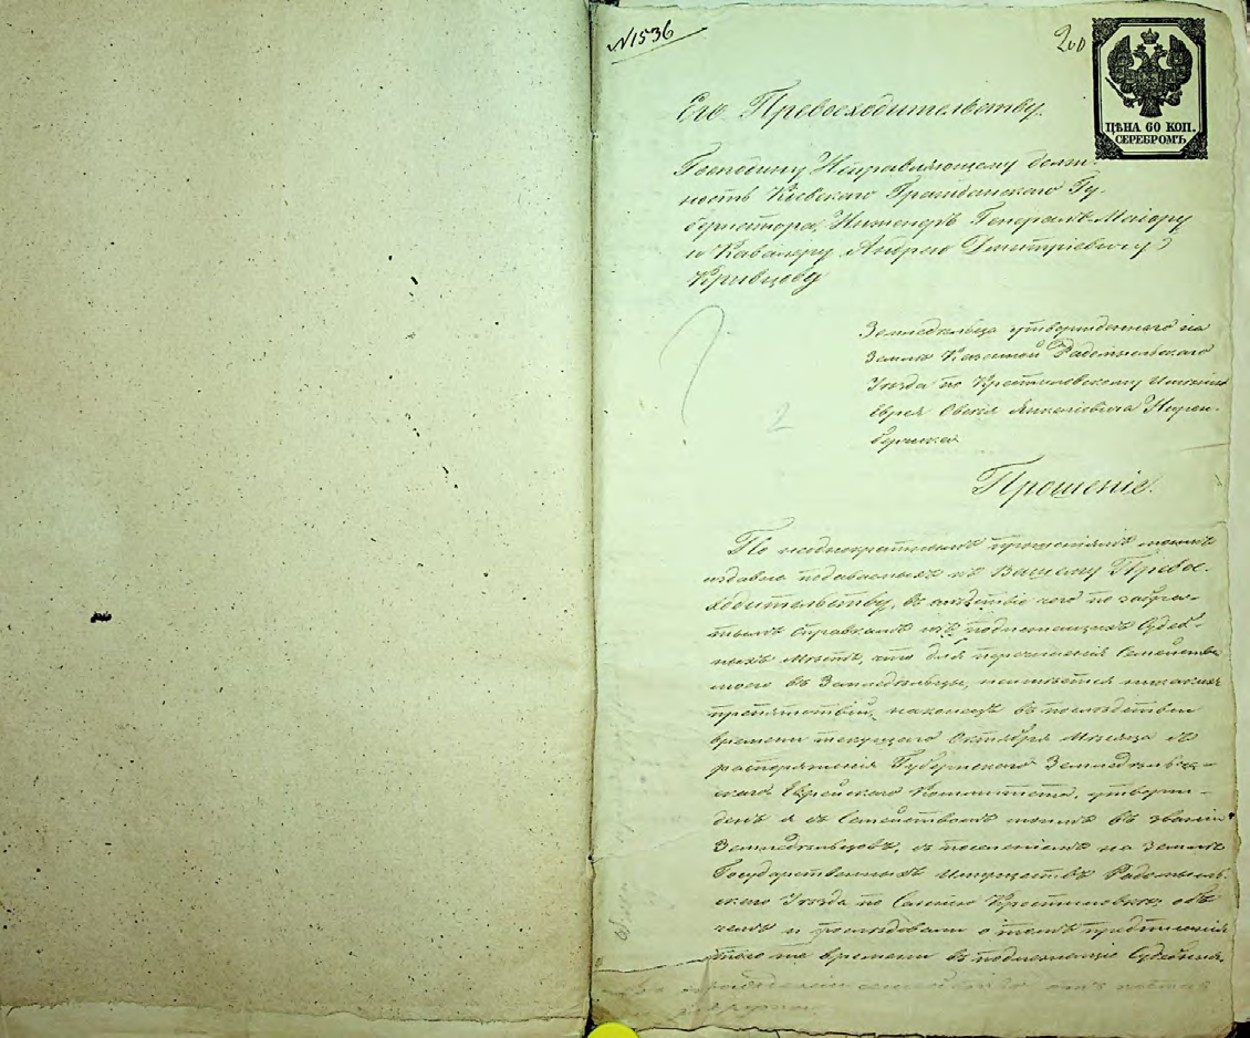 №1536
200
ЦѢНА 60 КОП.
СЕРЕБРОМЪ
Его Превосходительству
Господину Исправляющему долж-
ность Киевского Гражданского Гу-
бернатора, Инженеръ Генералъ-Маіору
и Кавалеру Андрею Дмитріевичу
Кривцову
Земледѣльца утвержденнаго на
Землѣ Казенной Радомысльского
Уѣзда по Имѣнію
Еврея Овсія Янкеліовича
2
Прошеніе.
По неоднократнымъ прошеніямъ моимъ
издавна подаваемыхъ къ Вашему Превос-
ходительству, въ слѣдствіе чего по
справкамъ изъ подлежащихъ Судеб-
ныхъ Мѣстъ, что для перечисленія Семейства
моего въ Земледѣльцы, неимѣется никакихъ
препятствій, наконецъ въ послѣдствіи
времени текущего Октября Мѣсяца съ
распоряженія Губернского Земледѣльче-
ского Еврейского Комитета, утверж-
денъ я съ Семействомъ моимъ въ званіи
Земледѣльцовъ, съ поселеніемъ на Землѣ
Государственныхъ Имуществъ Радомысль-
ского Уѣзда по Селенію объ
чемъ и послѣдовали о томъ предписанія
того же времени въ подлежащіе Судебныя